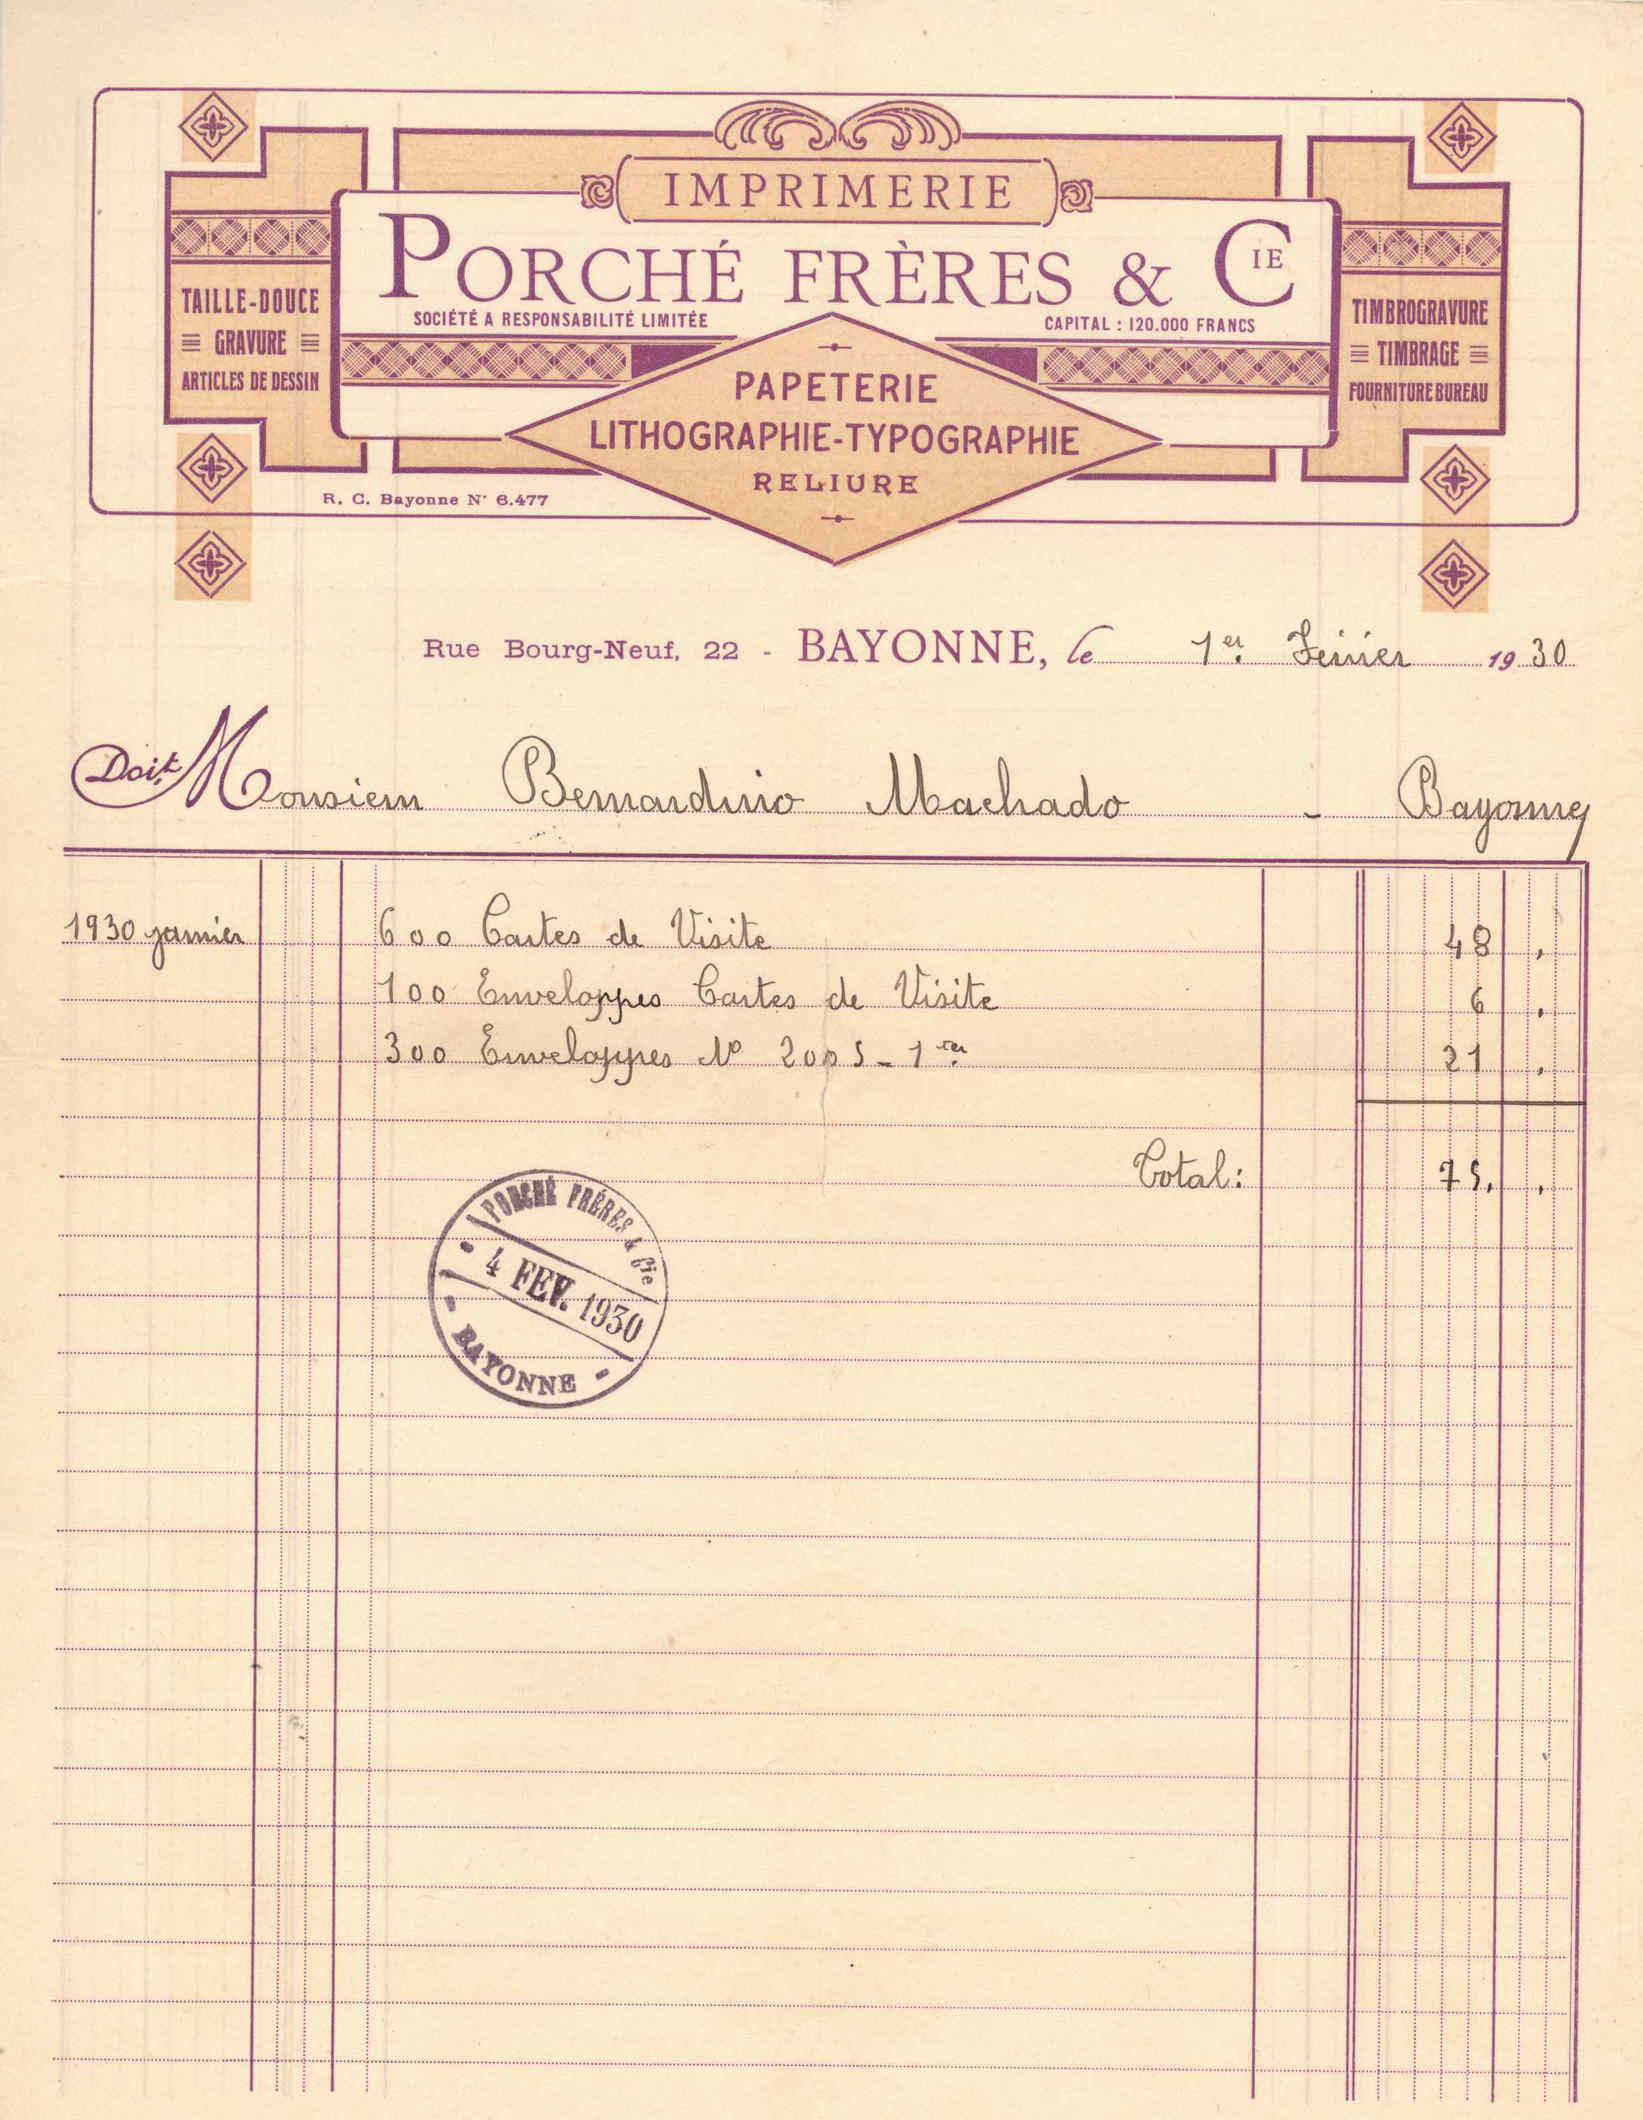 IMPRIMERIE
PORCHÉ FRÈRES & CIE
SOCIÉTÉ A RESPONSABILITÉ LIMITÉE
CAPITAL : 120.000 FRANCS
TAILLE-DOUCE
GRAVURE
ARTICLES DE DESSIN
TIMBROGRAVURE
TIMBRAGE
FOURNITURE BUREAU
PAPETERIE
LITHOGRAPHIE-TYPOGRAPHIE
RELIURE
R. C. Bayonne N° 6.477
Rue Bourg-Neuf, 22 - BAYONNE, le 1er Février 1930
Doit Monsieur Bernardino Machado - Bayonne
1930 janvier 600 Cartes de Visite 48 .
100 Enveloppes Cartes de Visite 6 .
300 Enveloppes No 2005 - 1 21 .
Total: 75. .
PORCHÉ FRÈRES & Cie
4 FEV. 1930
BAYONNE